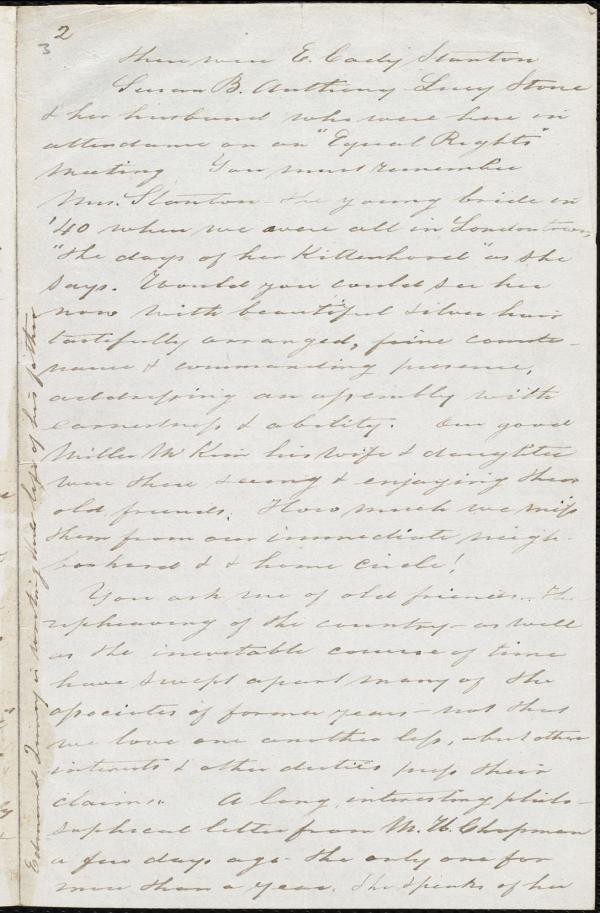 2
3
there were E. Cady Stanton
Susan B. Anthony Lucy Stone
& her husband who were here in
attendance on an "Equal Rights"
Meeting. You must remember
Mrs. Stanton - the young bride in
'40 when we were all in London town,
"the days of her Kittenhood" as she
says. Would you could see her
now with beautiful silver hair
tastefully arranged, fine counte-
nance & commanding presence,
addressing an assembly with
earnestness & ability. Our good
Miller McKim his wife & daughter
were there seeing & enjoying these
old friends. How much we miss
them from our immediate neigh-
borhood & & home circle!
You ask me of old friends. The
upheaving of the country - as well
as the inevitable course of time
have swept apart many of the
associates of former years - not that
we love one another less, but other
interests & other duties press their
claims. A long, interesting philo-
sophical letter from M. W. Chapman
a few days ago - the only one for
more than a year. She speaks of her
Edmund Quincy is writing the life of his father